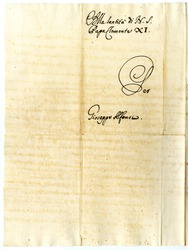 Alla Santità di N. S.
Papa Clemente XI.
Per
Giuseppe Alfonsi.